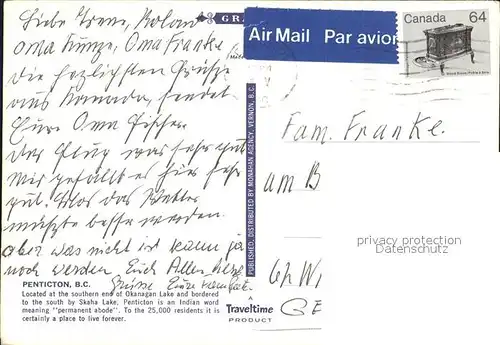 Liebe Irene, Roland
Oma Kunze, Oma Franke
Die herzlichsten Grüße
aus Kanada, sendet
Eure Oma Fischer
Der Flug war sehr gut
Mir gefällt es hier sehr
gut. Blos das Wetter
müßte besser werden.
aber was nicht ist kann ja
noch werden. Euch Allen
Grüsse Eure
GRA
Air Mail Par avion
Canada 64
Fam. Franke.
am B
62 Wi
GE
privacy protection
Datenschutz
PUBLISHED, DISTRIBUTED BY MONAHAN AGENCY, VERNON, B.C.
PENTICTON, B.C.
Located at the southern end of Okanagan Lake and bordered
to the south by Skaha Lake, Penticton is an Indian word
meaning "permanent abode". To the 25,000 residents it is
certainly a place to live forever.
A
Traveltime
PRODUCT